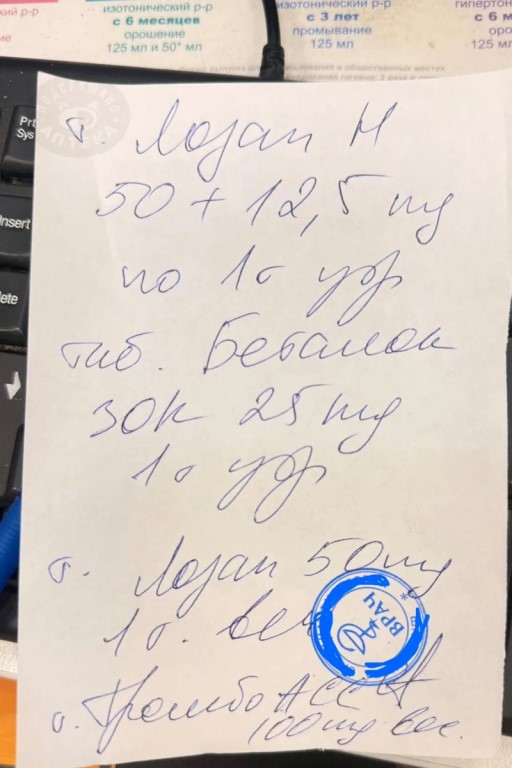 изотонический р-р
с 6 месяцев
орошение
125 мл и 50* мл
изотонический р-р
с 3 лет
промывание
125 мл
гипертон
с 6 м
оро
125
PrtS
Sys
Insert
lete
ПОДСЛУШАНО
АПТЕКА
т. Лозап Н
50 + 12,5 mg
по 1т утр
таб. Беталок
ЗОК 25 mg
1т утр
т. Лозап 50 mg
1т. веч
ВРАЧ
т. Тромбо АСС
100 mg веч.